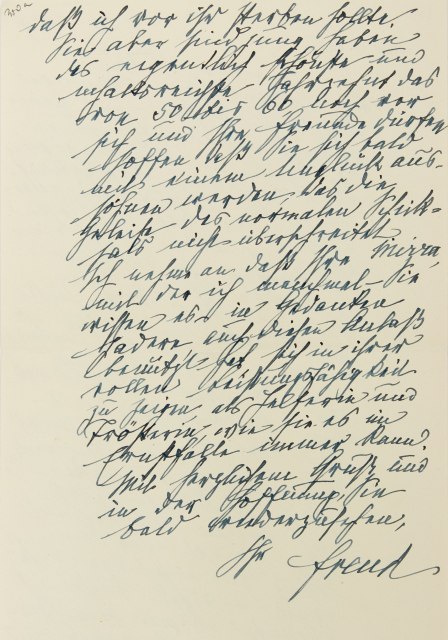 daß ich vor ihr sterben sollte.
Sie aber sind jung, haben
das eigentlich schönste und
inhaltsreichste Jahrzehnt, das
von 50 bis 60 noch vor
sich und Ihre Freunde dürfen
hoffen, daß Sie sich bald
mit einem Unglück aus-
söhnen werden, das die
Geleise des normalen Schick-
sals nicht überschreitet.
Ich nehme an, daß Ihre Mizza,
mit der ich manchmal, Sie
wissen es, in Gedanken
hadere auch diesen Anlaß
benutzt hat, sich in ihrer
vollen Leistungsfähigkeit
zu zeigen, als Helferin und
Trösterin, wie sie es im
Ernstfalle immer kann.
Mit herzlichem Gruß und
in der Hoffnung, Sie
bald wiederzusehen,
Ihr Freud